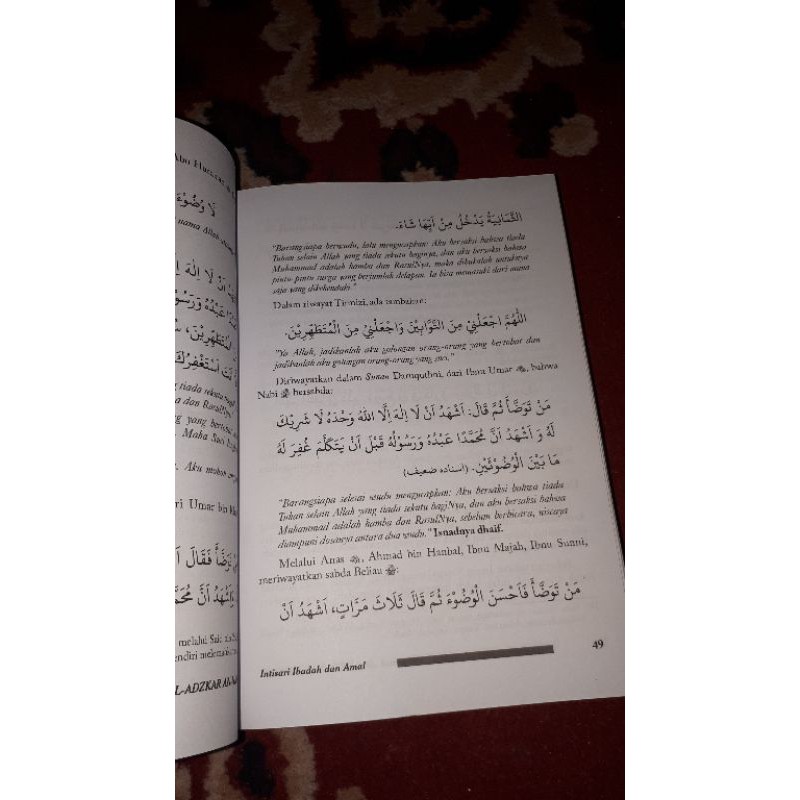 Abu Hurairah
لَا وُضُوْءَ
nama Allah
اَنْ لَا اِلٰهَ اِلَّا
عَبْدُهُ وَرَسُوْلُهُ
الْمُتَطَهِّرِيْنَ،
اَسْتَغْفِرُكَ
tiada sekutu bagi
dan RasulNya
yang bertobat
Maha Suci
Aku mohon
Umar bin
فَقَالَ
اَشْهَدُ اَنَّ مُحَمَّدًا
melalui
L-ADZKAR
الثَّمَانِيَةُ يَدْخُلُ مِنْ اَيِّهَا شَاءَ.
"Barangsiapa berwudu, lalu mengucapkan: Aku bersaksi bahwa tiada
Tuhan selain Allah yang tiada sekutu baginya, dan aku bersaksi bahwa
Muhammad adalah hamba dan RasulNya, maka dibukalah untuknya
pintu pintu surga yang berjumlah delapan. Ia bisa memasuki dari mana
saja yang dikehendaki."
Dalam riwayat Tirmizi, ada tambahan:
اَللّٰهُمَّ اجْعَلْنِيْ مِنَ التَّوَّابِيْنَ وَاجْعَلْنِيْ مِنَ الْمُتَطَهِّرِيْنَ.
"Ya Allah, jadikanlah aku golongan orang-orang yang bertobat dan
jadikanlah aku golongan orang-orang yang suci."
Diriwayatkan dalam Sunan Daruquthni, dari Ibnu Umar ؓ, bahwa
Nabi ﷺ bersabda:
مَنْ تَوَضَّأَ ثُمَّ قَالَ: اَشْهَدُ اَنْ لَا اِلٰهَ اِلَّا اللّٰهُ وَحْدَهُ لَا شَرِيْكَ
لَهُ وَ اَشْهَدُ اَنَّ مُحَمَّدًا عَبْدُهُ وَرَسُوْلُهُ قَبْلَ اَنْ يَتَكَلَّمَ غُفِرَ لَهُ
مَا بَيْنَ الْوُضُوْئَيْنِ. (اسناده ضعيف)
"Barangsiapa selesai wudu mengucapkan: Aku bersaksi bahwa tiada
Tuhan selain Allah yang tiada sekutu bagiNya, dan aku bersaksi bahwa
Muhammad adalah hamba dan RasulNya, sebelum berbicara, niscaya
diampuni dosanya antara dua wudu." Isnadnya dhaif.
Melalui Anas ؓ, Ahmad bin Hanbal, Ibnu Majah, Ibnu Sunni,
meriwayatkan sabda Beliau ﷺ:
مَنْ تَوَضَّأَ فَاَحْسَنَ الْوُضُوْءَ ثُمَّ قَالَ ثَلَاثَ مَرَّاتٍ، اَشْهَدُ اَنْ
Intisari Ibadah dan Amal
49